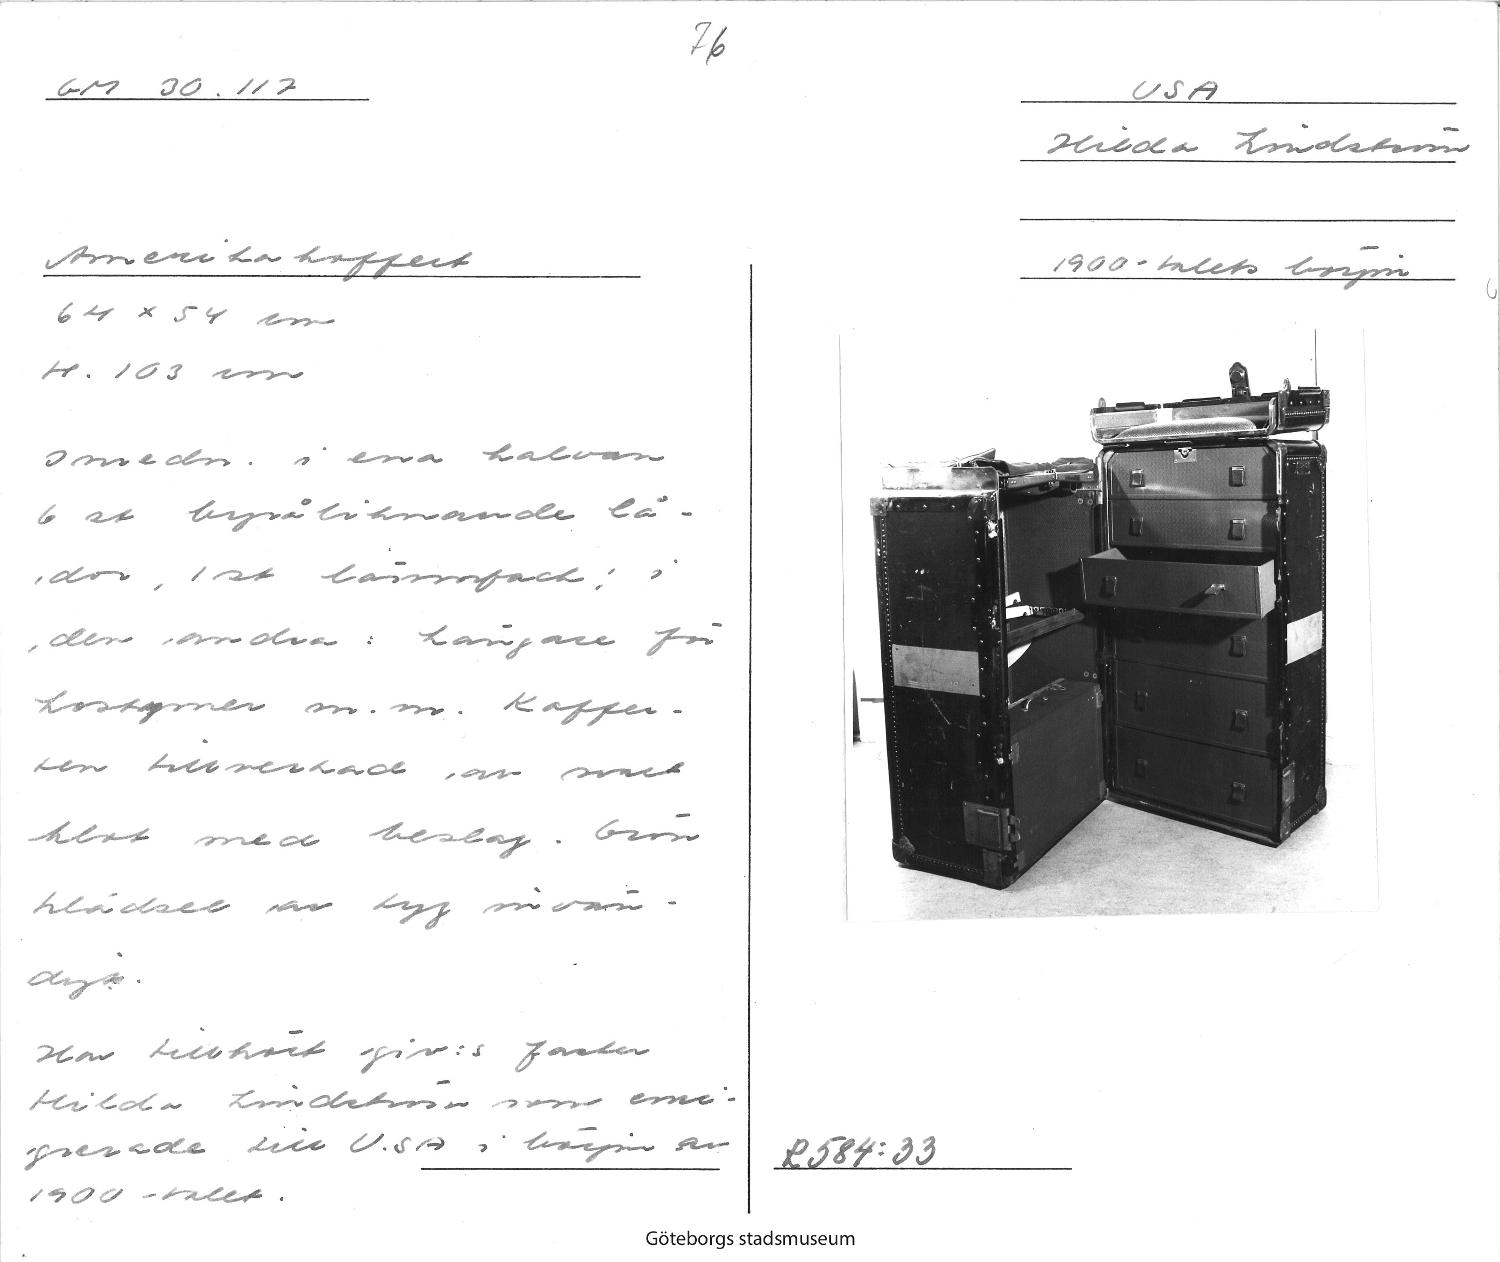 76
GM 30.117
USA
Hilda Lindström
1900-talets början
Amerikakoffert
64 x 54 cm
H. 103 cm
Inredn. i ena halvan
6 st byråliknande lå-
dor, 1 st lönnfack; i
den andra: hängare för
kostymer m.m. Koffer-
ten tillverkad av svart
klot med beslag. Grön
klädsel av tyg invän-
digt.
Har tillhört giv:s faster
Hilda Lindström som emi-
grerade till U.SA i början av
1900-talet.
R584:33
Göteborgs stadsmuseum